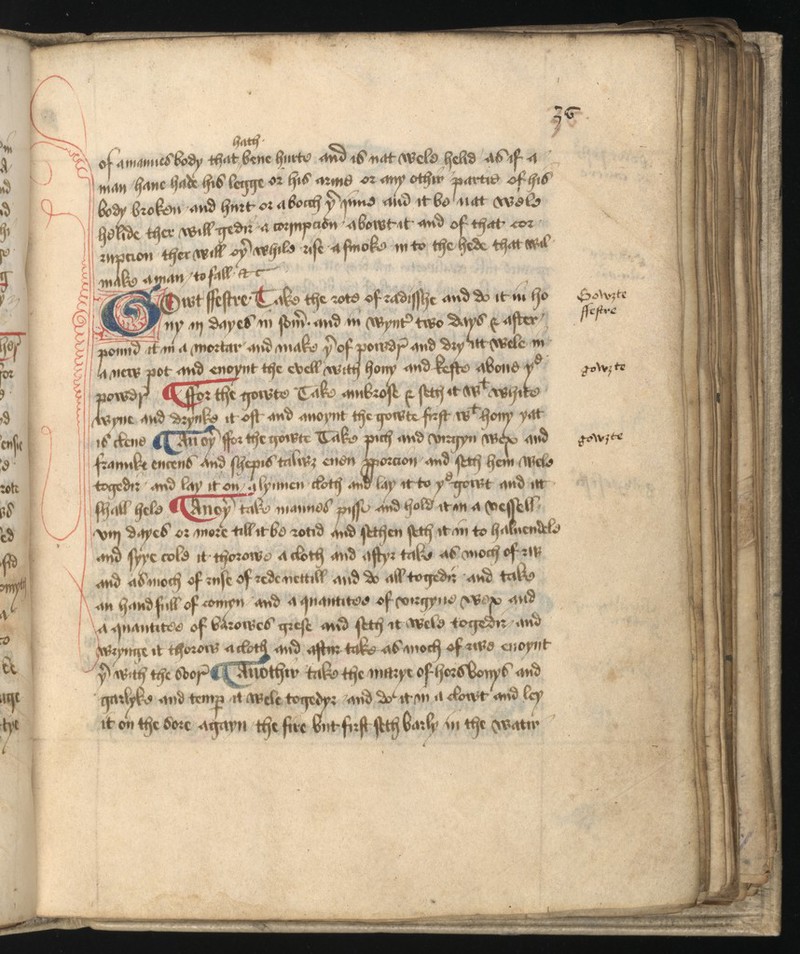 36
hath
of a mannes body that bene hurte and is nat wele helid as if a
man haue hade his legge or his arme or any othir partie of his
body broken and hurt or a bocch yͤ and it be nat wele
holide ther will gedir a corrupcion abowt it and of that cor
rupcion ther will oyͬ while rise a smoke in to the hede that wil
make a man to fall &c
Gowt ffestre Take the rote of radisshe and do it in ho
ny iij dayes in som̄ and in wyntͬ two days & after
pound it in a mortar and make yͬ of powdr̄ and dry itt wele in
a new pot and enoynt the evell with hony and keste aboue yͤ
powdr̄ ¶ ffor the gowte Take ambrose & seth it wͭ white
wyne and drynke it oft and anoynt the gowte first wͭ hony yat
is clene ¶ An oyͬ ffor the gowte Take pich and virgyn wex and
franke encens and shepis talwȝ euen ꝓporcion and seth hem wele
togedir and lay it on a lynnen cloth and lay it to yͤ gowt and itt
shall hele ¶ An oyͬ take mannes pisse and hold it in a vessell
viij dayes or more till it be rotid and sethen seth it in to haluendele
and syye cole it thorowe a cloth and aftyr take as moch of rw
and as moch of iuse of rede nettill and do all togedir and take
an handfull of comyn and a quantitee of virgyne wex and
a quantitee of barowes grese and seth it wele togedir and
wrynge it thorow a cloth and aftur take as moch of rwe enoynt
yͬ with the soor ¶ Anothir take the marye of hors bonys and
garlyke and temp̄ it wele togedyr and do it in a clowt and ley
it on the sore agayn the fire but first seth barly in the watir
Gowȝte
ffestre
gowȝte
gowȝte